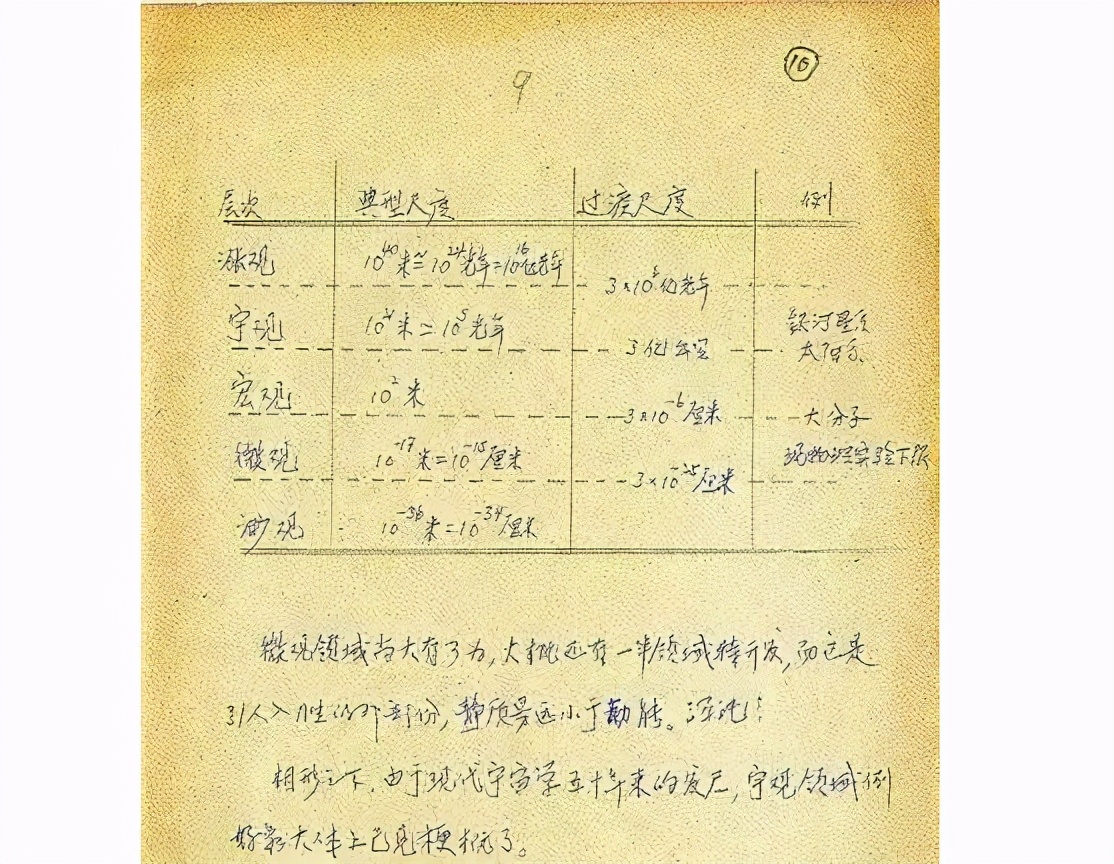 ⑩
9
层次 典型尺度 过渡尺度 例
胀观 10^40米≃10^24光年=10^16亿光年
3×10^8亿光年
宇观 米=10^5光年 银河星系
3亿 太阳系
宏观 10^2米
3×10^-6厘米 大分子
微观 10^-17米=10^-15厘米 实验下限
3×10^-25厘米
渺观 10^-36米=10^-34厘米
微观领域当大有可为,大概还有一半领域待开发,而这是
引人入胜的那部份,静质量远小于动能。
相形之下,由于现代宇宙学五十年来的发展,宇观领域倒
好象大体上已见梗概了。